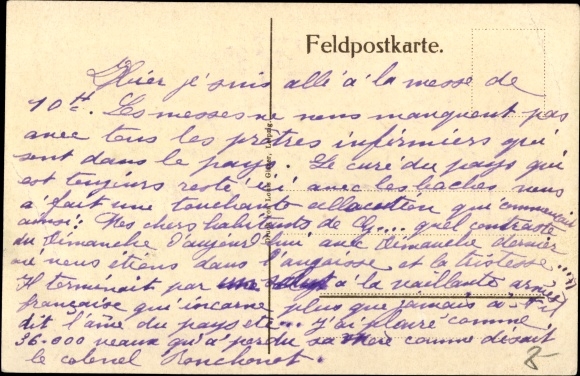 Feldpostkarte.
Hier je suis allé à la messe de
10H. Les messes ne nous manquent pas
avec tous les prêtres infirmiers qui
sont dans le pays. Le curé du pays qui
est toujours resté ici avec les boches nous
a fait une touchante allocution qui commençait
ainsi: Mes chers habitants de G.... quel contraste
du Dimanche d'aujourd'hui avec Dimanche dernier
où nous étions dans l'angoisse et la tristesse....
Il terminait par une à la vaillante armée
française qui incarne plus que jamais a-t-il
dit l'âme du pays etc... J'ai pleuré comme
36.000 veaux qu'a perdu sa mère comme disait
le colonel Ronchonot.
8-